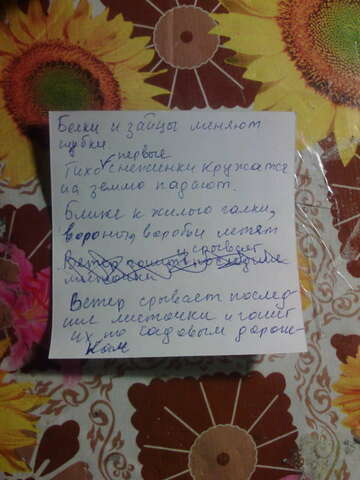 Белки и зайцы меняют
шубки
первые
Тихо снежинки кружатся
на землю падают.
Ближе к жилью галки,
вороны, вороби летят
и срывает
Ветер гонит последние
листочки
Ветер срывает послед-
ние листочки и гонит
их по садовым дорож-
кам